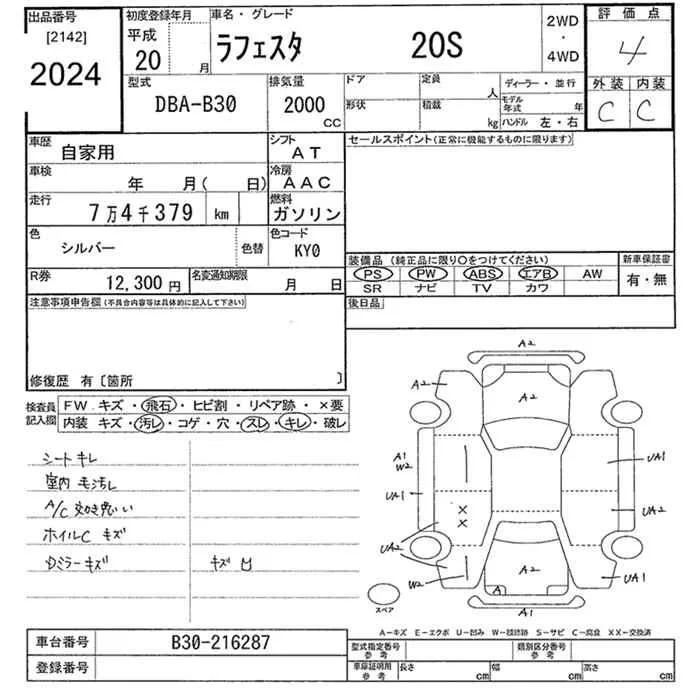 出品番号 初度登録年月 車名・グレード 2WD 評価点
[2142] 平成 ラフェスタ 20S ・ 4
2024 20 月 4WD
型式 排気量 ドア 定員 人 ディーラー・並行 外装 内装
DBA-B30 2000 CC 形状 積載 kg モデル年式 年 C C
ハンドル 左・右
車歴 自家用 シフト AT セールスポイント(正常に機能するものに限ります)
車検 年 月( 日) 冷房 AAC
走行 7万4千379 km 燃料 ガソリン
色 シルバー 色替 色コード KY0
装備品 (純正品に限り〇をつけてください) 新車保証書
PS PW ABS エアB AW 有・無
SR ナビ TV カワ
R券 12,300円 名変通知期限 月 日
後日品
注意事項申告欄(不具合内容等は具体的に記入して下さい)
修復歴 有〔箇所 〕
検査員記入欄 FW キズ・飛石・ヒビ割・リペア跡・×要
内装 キズ・汚レ・コゲ・穴・スレ・キレ・破レ
シートキレ
室内 毛汚レ
A/C 効き悪い
ホイルC キズ
Dミラーキズ キズ凹
A2
A2
A2
A1
W2
UA1
UA1
X
X
UA2
UA2
W2
A2
UA1
A
A1
スペア
A-キズ E-エクボ U-凹み W-板金跡 S-サビ C-腐食 XX-交換済
車台番号 B30-216287 型式指定番号 参考 類別区分番号 参考
登録番号 車庫証明用 参考 長さ cm 幅 cm 高さ cm